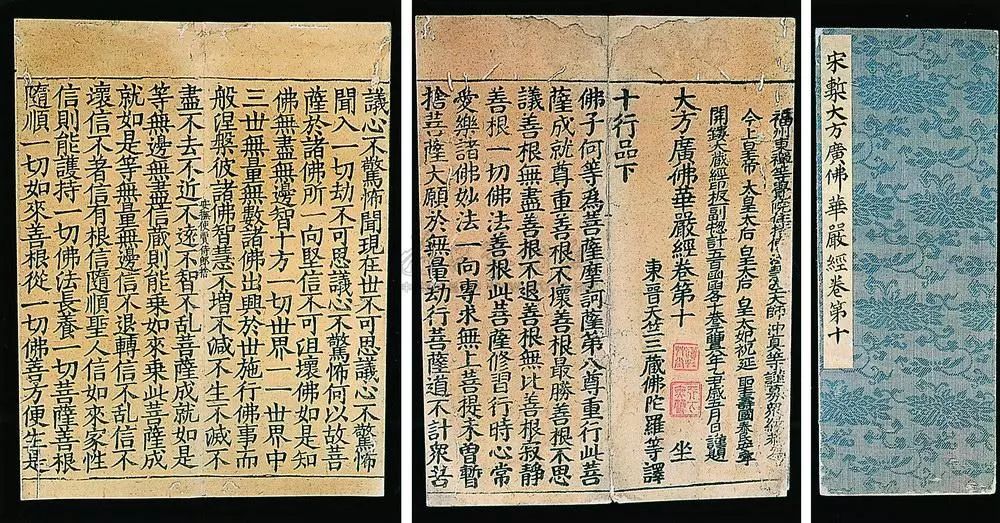 宋槧大方廣佛華嚴經卷第十
福州東禪等覺院住持大師 沖真等謹募眾緣
今上皇帝 太皇太后 皇太后 皇太妃祝延 聖壽國泰民安
開鏤大藏經印板一副總計五百函各十卷 月日謹題
大方廣佛華嚴經卷第十 坐
東晉天竺三藏佛陀羅等譯
十行品下
佛子何等為菩薩摩訶薩第八尊重行此菩
薩成就尊重善根不壞善根最勝善根不思
議善根無盡善根不退善根無比善根寂靜
善根一切佛法善根此菩薩修習行時心常
愛樂諸佛妙法一向專求無上菩提未曾暫
捨菩薩大願於無量劫行菩薩道不計眾苦
議心不驚怖聞現在世不可思議心不驚怖
聞入一切劫不可思議心不驚怖何以故菩
薩於諸佛所一向堅信不可沮壞佛如是知
佛無盡無邊智十方一切世界一一世界中
三世無量無數諸佛出興於世施行佛事而
般涅槃彼諸佛智慧不增不減不生不滅不
盡不去不近不遠不智不乱菩薩成就如是
等無邊無盡信藏則能乘如來乘此菩薩成
就如是等無量無邊信不退轉信不乱信不
壞信不著信有根信隨順聖人信如來家性
信則能護持一切佛法長養一切菩薩善根
隨順一切如來善根從一切佛善方便生是